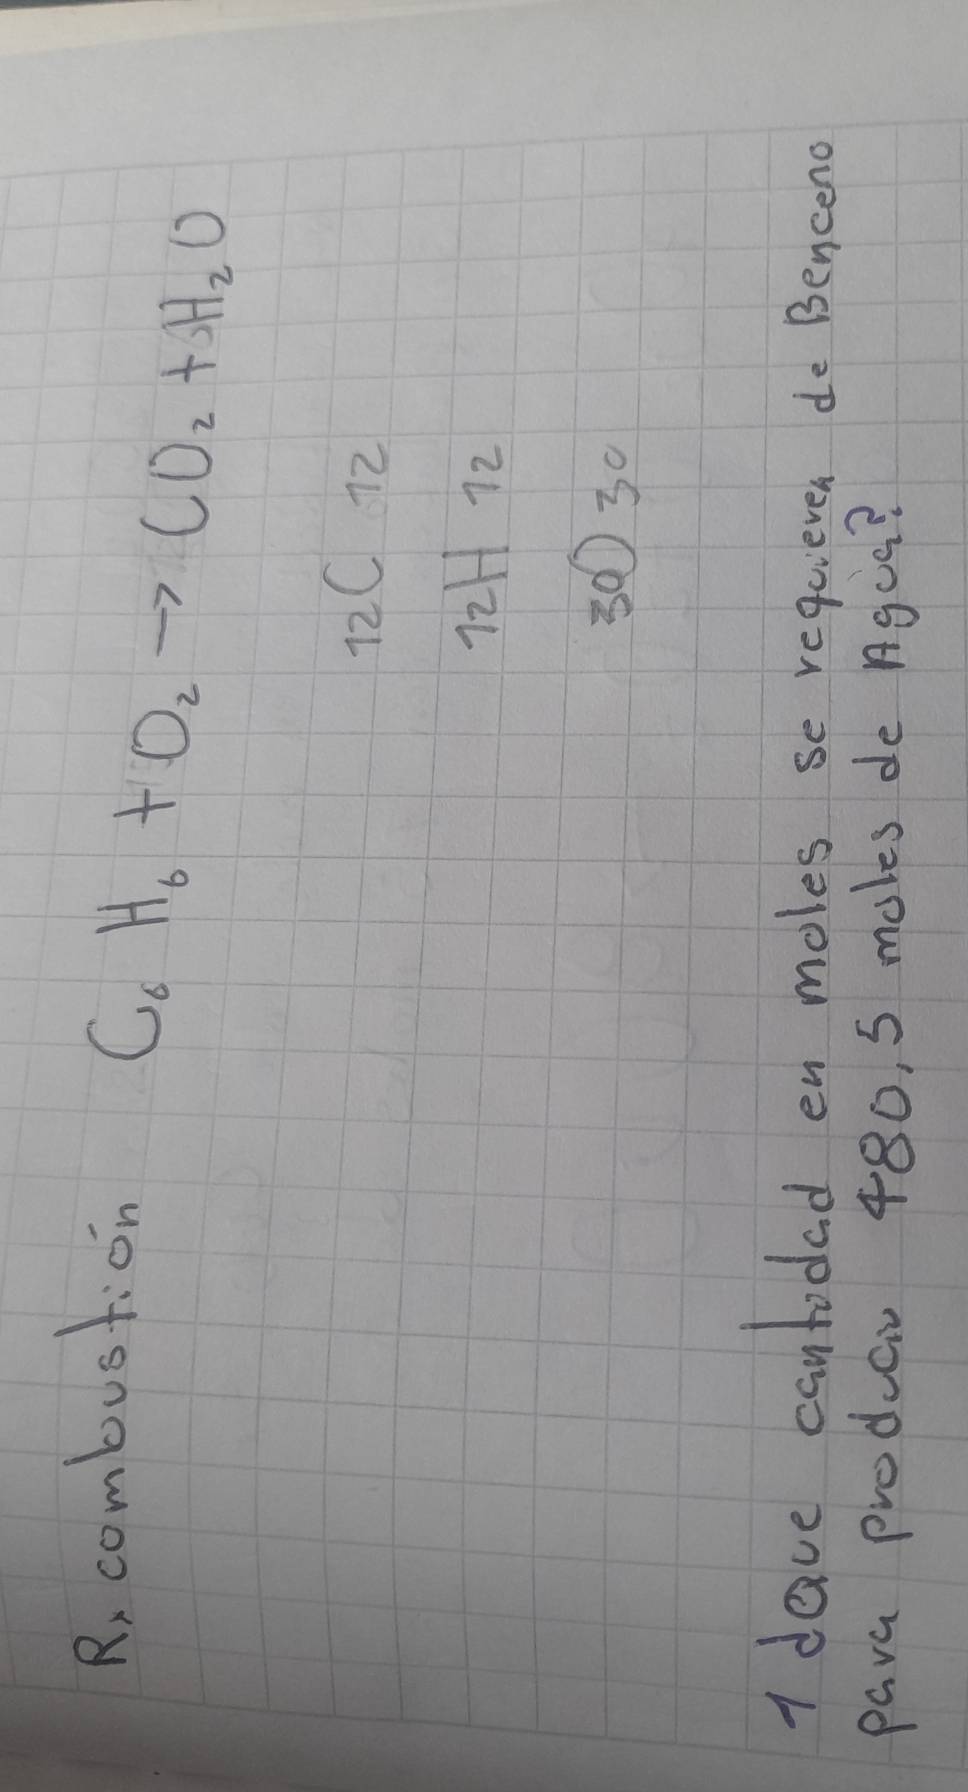 Rx combustión C₆ H₆ + O₂ → CO₂ + H₂O
12 C 12
12 H 12
30 O 30
1 ¿Que cantidad en moles se requieren de Benceno
para producir 480,5 moles de Agua?